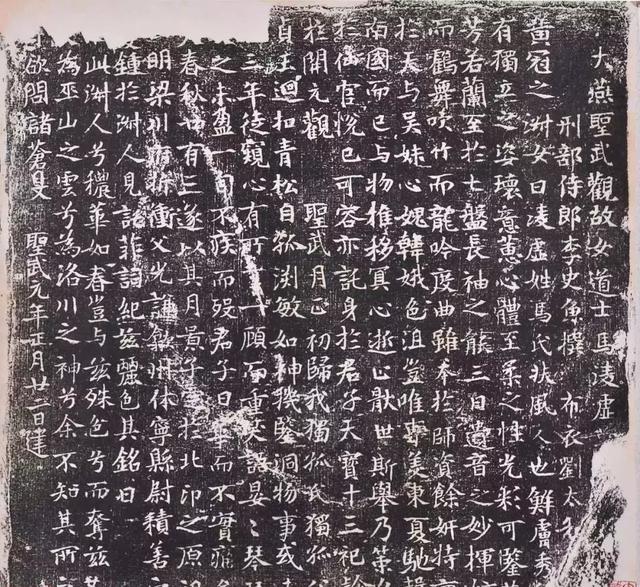 大燕聖武觀故女道士馬凌虛
刑部侍郎李史魚撰 布衣劉太和
黃冠之淑女曰凌虛姓馬氏扶風人也鮮膚秀
有獨立之姿瓌意蕙心體至柔之性光彩可鑒
芳若蘭至於七盤長袖之能三日遺音之妙揮
而鶴舞吹竹而龍吟度曲雖本於師資餘妍特
於天与吳妹心愧韓娥色沮豈唯專美東夏馳
南國而已与物推移冥心逝止厭世斯舉乃策
於仙官悅已可容亦託身於君子天寶十三祀
於開元觀 聖武月正初歸我獨孤氏獨孤
貞玉迴扣青松自孤渊敏如神機鑒洞物事或
三年徒窺心有可一顧而重笑語晏晏琴
之未盈一旬不疾而歿君子曰華而不實痛
春秋廿有三遂以其月景子窆於北邙之原
明梁川府折衝父光謙歙州休寧縣尉積善
鍾於淑人見託菲詞紀茲麗色其銘曰
此淑人兮穠華如春豈与茲殊色兮而奪茲其
為巫山之雲兮為洛川之神兮余不知其所
欲問諸蒼旻 聖武元年正月廿二日建